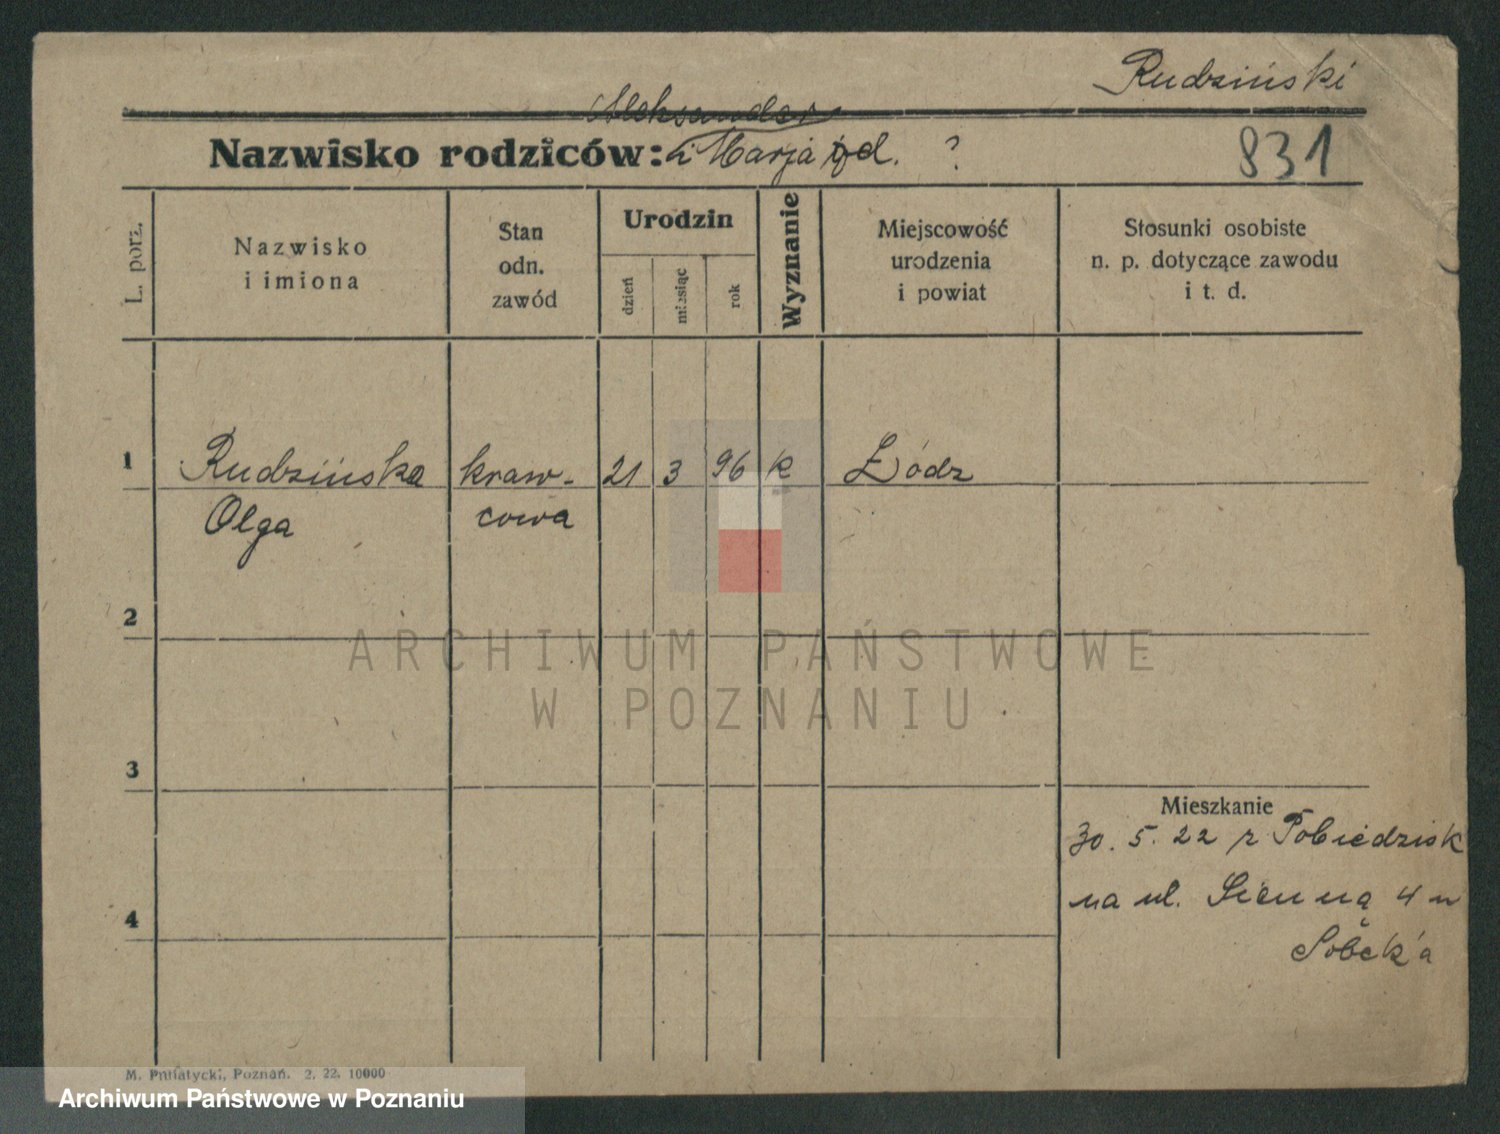 Rudziński
Aleksander
Nazwisko rodziców: i Marja od. ?
831
L. porz.
Nazwisko
i imiona
Stan
odn.
zawód
Urodzin
dzień
miesiąc
rok
Wyznanie
Miejscowość
urodzenia
i powiat
Stosunki osobiste
n. p. dotyczące zawodu
i t. d.
1 Rudzińska kraw- 21 3 96 k Łódz
Olga cowa
2
ARCHIWUM PAŃSTWOWE
W POZNANIU
3
Mieszkanie
30. 5. 22 z Pobiedzisk
na ul. Sienną 4 u
4
Sobek'a
M. Putiatycki, Poznań. 2. 22. 10000
Archiwum Państwowe w Poznaniu